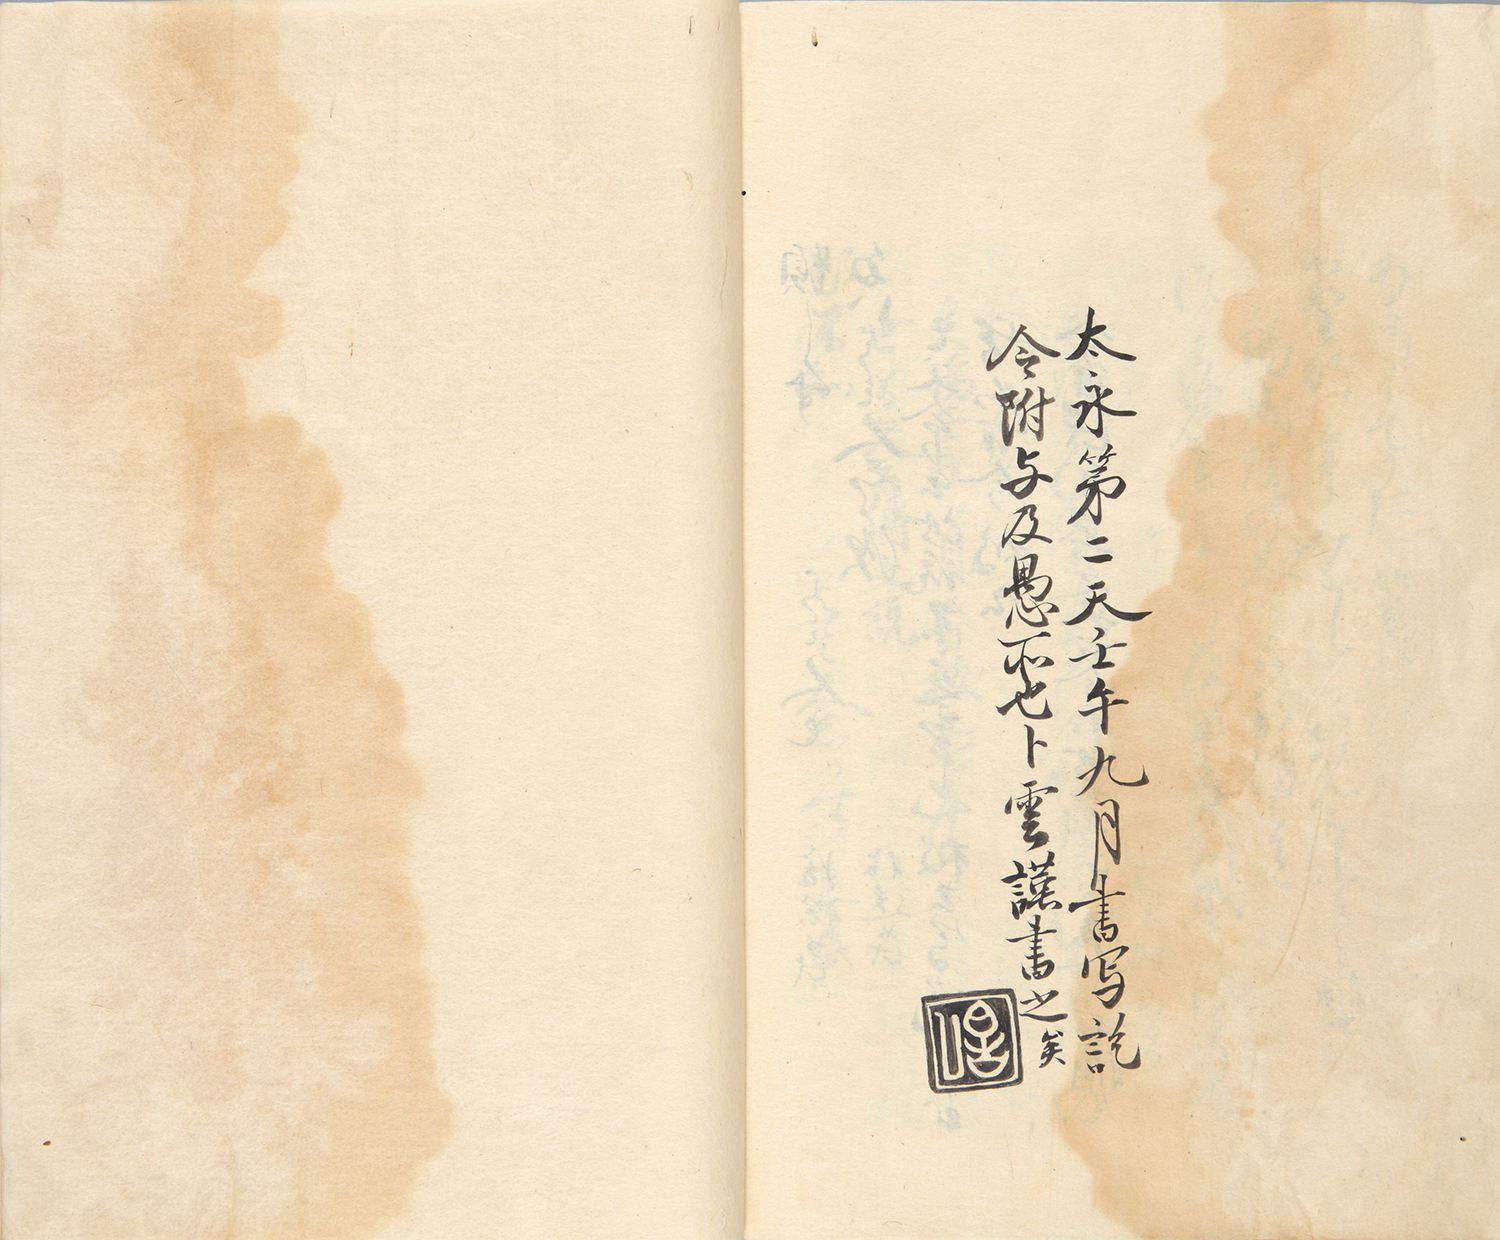 太永第二天壬午九月書写訖
令附与及愚而已也卜雲謹書之矣